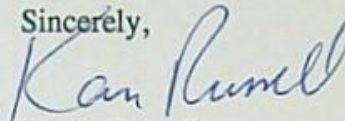 Sincerely,
Ken Russell